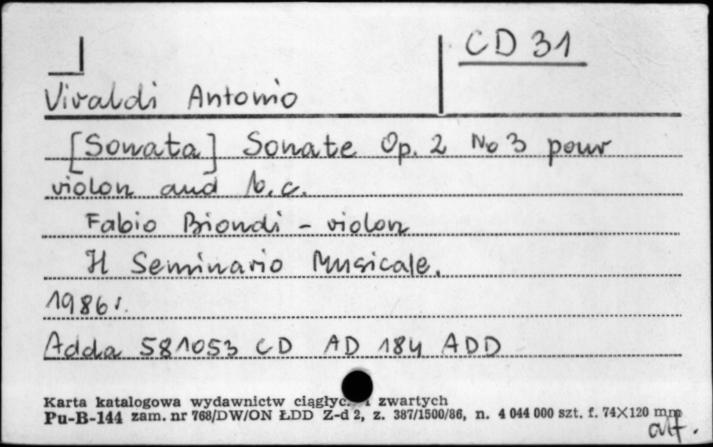 CD 31
Vivaldi Antonio
[Sonata] Sonate Op. 2 No 3 pour
violon and b.c.
Fabio Biondi - violon
Il Seminario Musicale.
1986r.
Adda 581053 CD AD 184 ADD
Karta katalogowa wydawnictw ciągłyc. i zwartych
Pu-B-144 zam. nr 768/DW/ON ŁDD Z-d 2, z. 387/1500/86, n. 4 044 000 szt. f. 74×120 mm